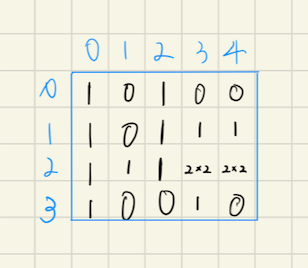 0 1 2 3 4
0 1 0 1 0 0
1 1 0 1 1 1
2 1 1 1 2×2 2×2
3 1 0 0 1 0